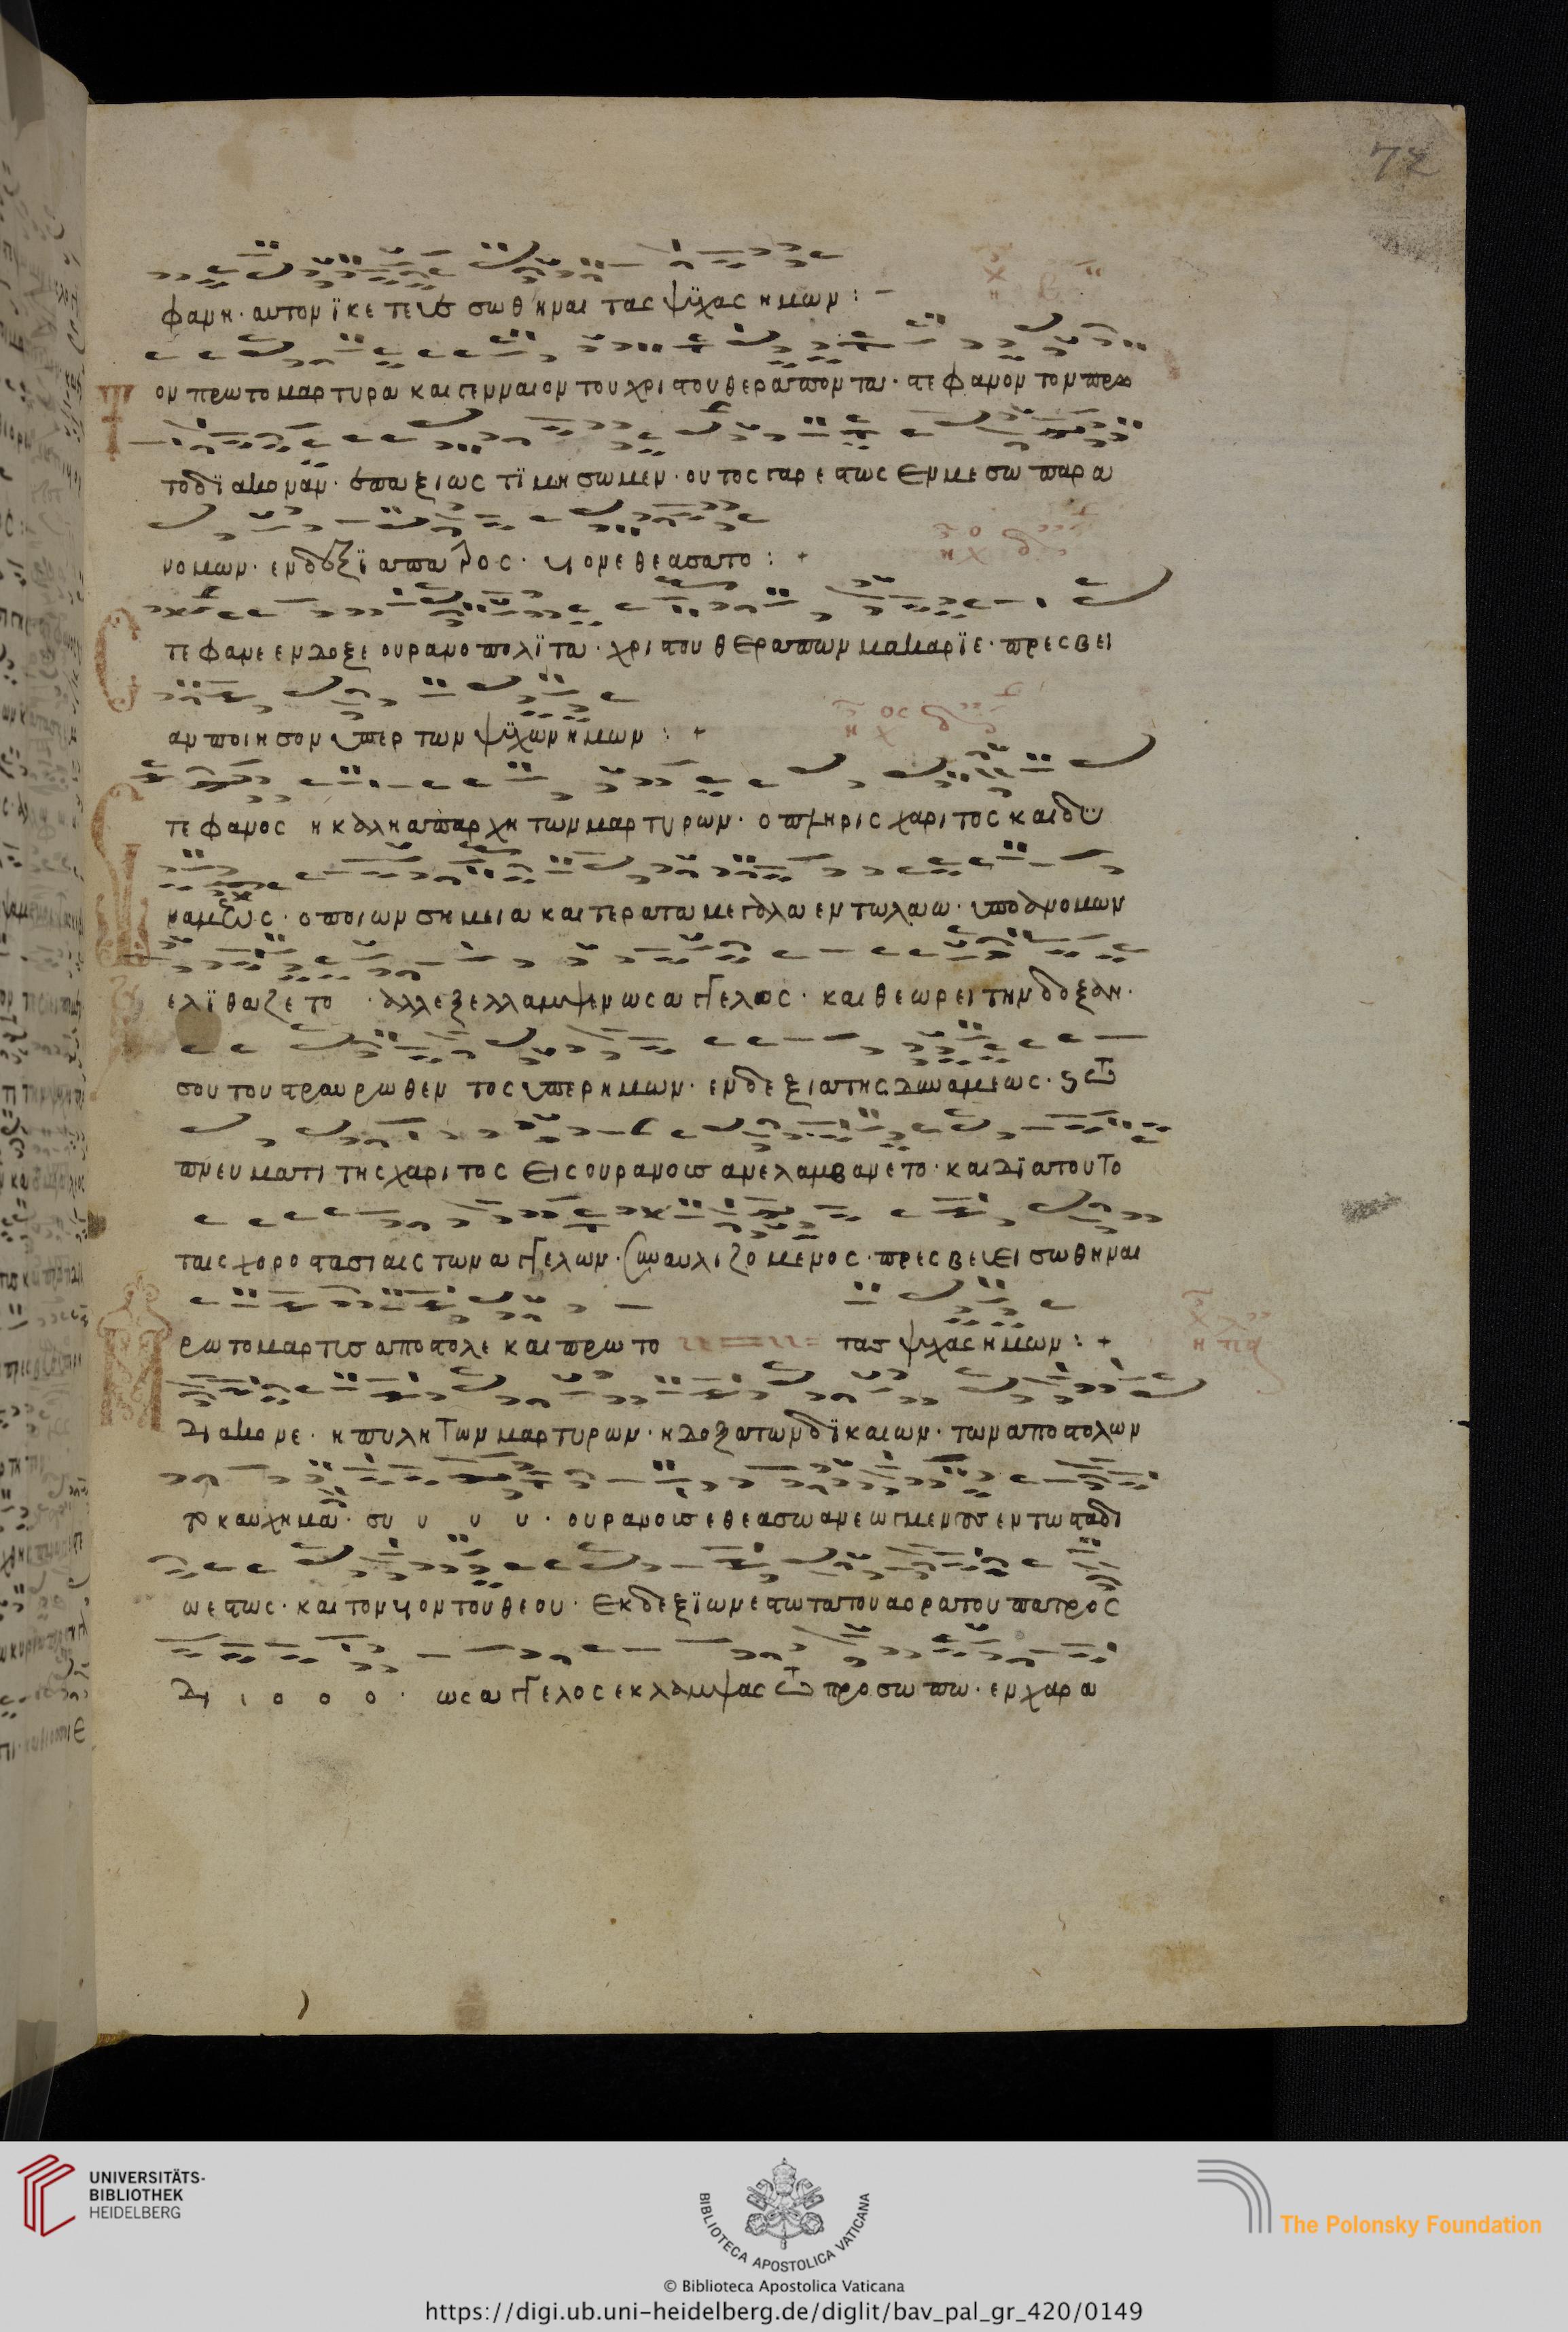 72
φανε · αυτον ϊκετευε σωθηναι τας ψυχας ημων : –
ον πρωτομαρτυρα και γενναιον του χριστου θεραποντα · στεφανον τον πρω
τοδϊακοναν · επαξιως τϊμησωμεν · ουτος γαρ εστως εν μεσω παρα
νομων · εν δεξϊα πατρος · υιον εθεασατο : +
τεφανε ενδοξε ουρανοπολϊτα · χριστου θεραπων μακαρϊε · πρεσβει
αν ποιησον υπερ των ψυχων ημων : +
τεφανος η καλη απαρχη των μαρτυρων · ο πληρις χαριτος και δυ
ναμεως · ο ποιων σημεια και τερατα μεγαλα εν τω λαω · υπο ανομων
ελϊθαζετο · αλλ εξελλαμψεν ως αγγελος · και θεωρει την δοξαν ·
σου του σταυρωθεντος υπερ ημων · εν δεξια της δυναμεως ·
πνευματι της χαριτος εις ουρανους ανελαμβανετο · και δϊα τουτο
ταις χοροστασιαις των αγγελων · συναυλιζομενος · πρεσβευει σωθηναι
ρωτομαρτυς αποστολε και πρωτο τας ψυχας ημων : +
διακονε · η πυλη των μαρτυρων · η δοξα των δϊκαιων · των αποστολων
το καυχημα · συ υ υ υ · ουρανους εθεασω ανεωγμενους εν τω σταδι
ω εστως · και τον υιον του θεου · εκ δεξϊων εστωτα του αορατου πατρος
δι ι ο ο ο · ως αγγελος εκλαμψας τω προσωπω · εν χαρα
UNIVERSITÄTS-
BIBLIOTHEK
HEIDELBERG
BIBLIOTECA APOSTOLICA VATICANA
The Polonsky Foundation
© Biblioteca Apostolica Vaticana
https://digi.ub.uni-heidelberg.de/diglit/bav_pal_gr_420/0149